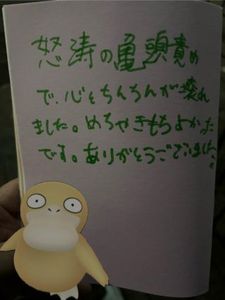 怒涛の亀頭責め
で、心とちんちんが壊れ
ました。めちゃきもちよかった
です。ありがとうございました。